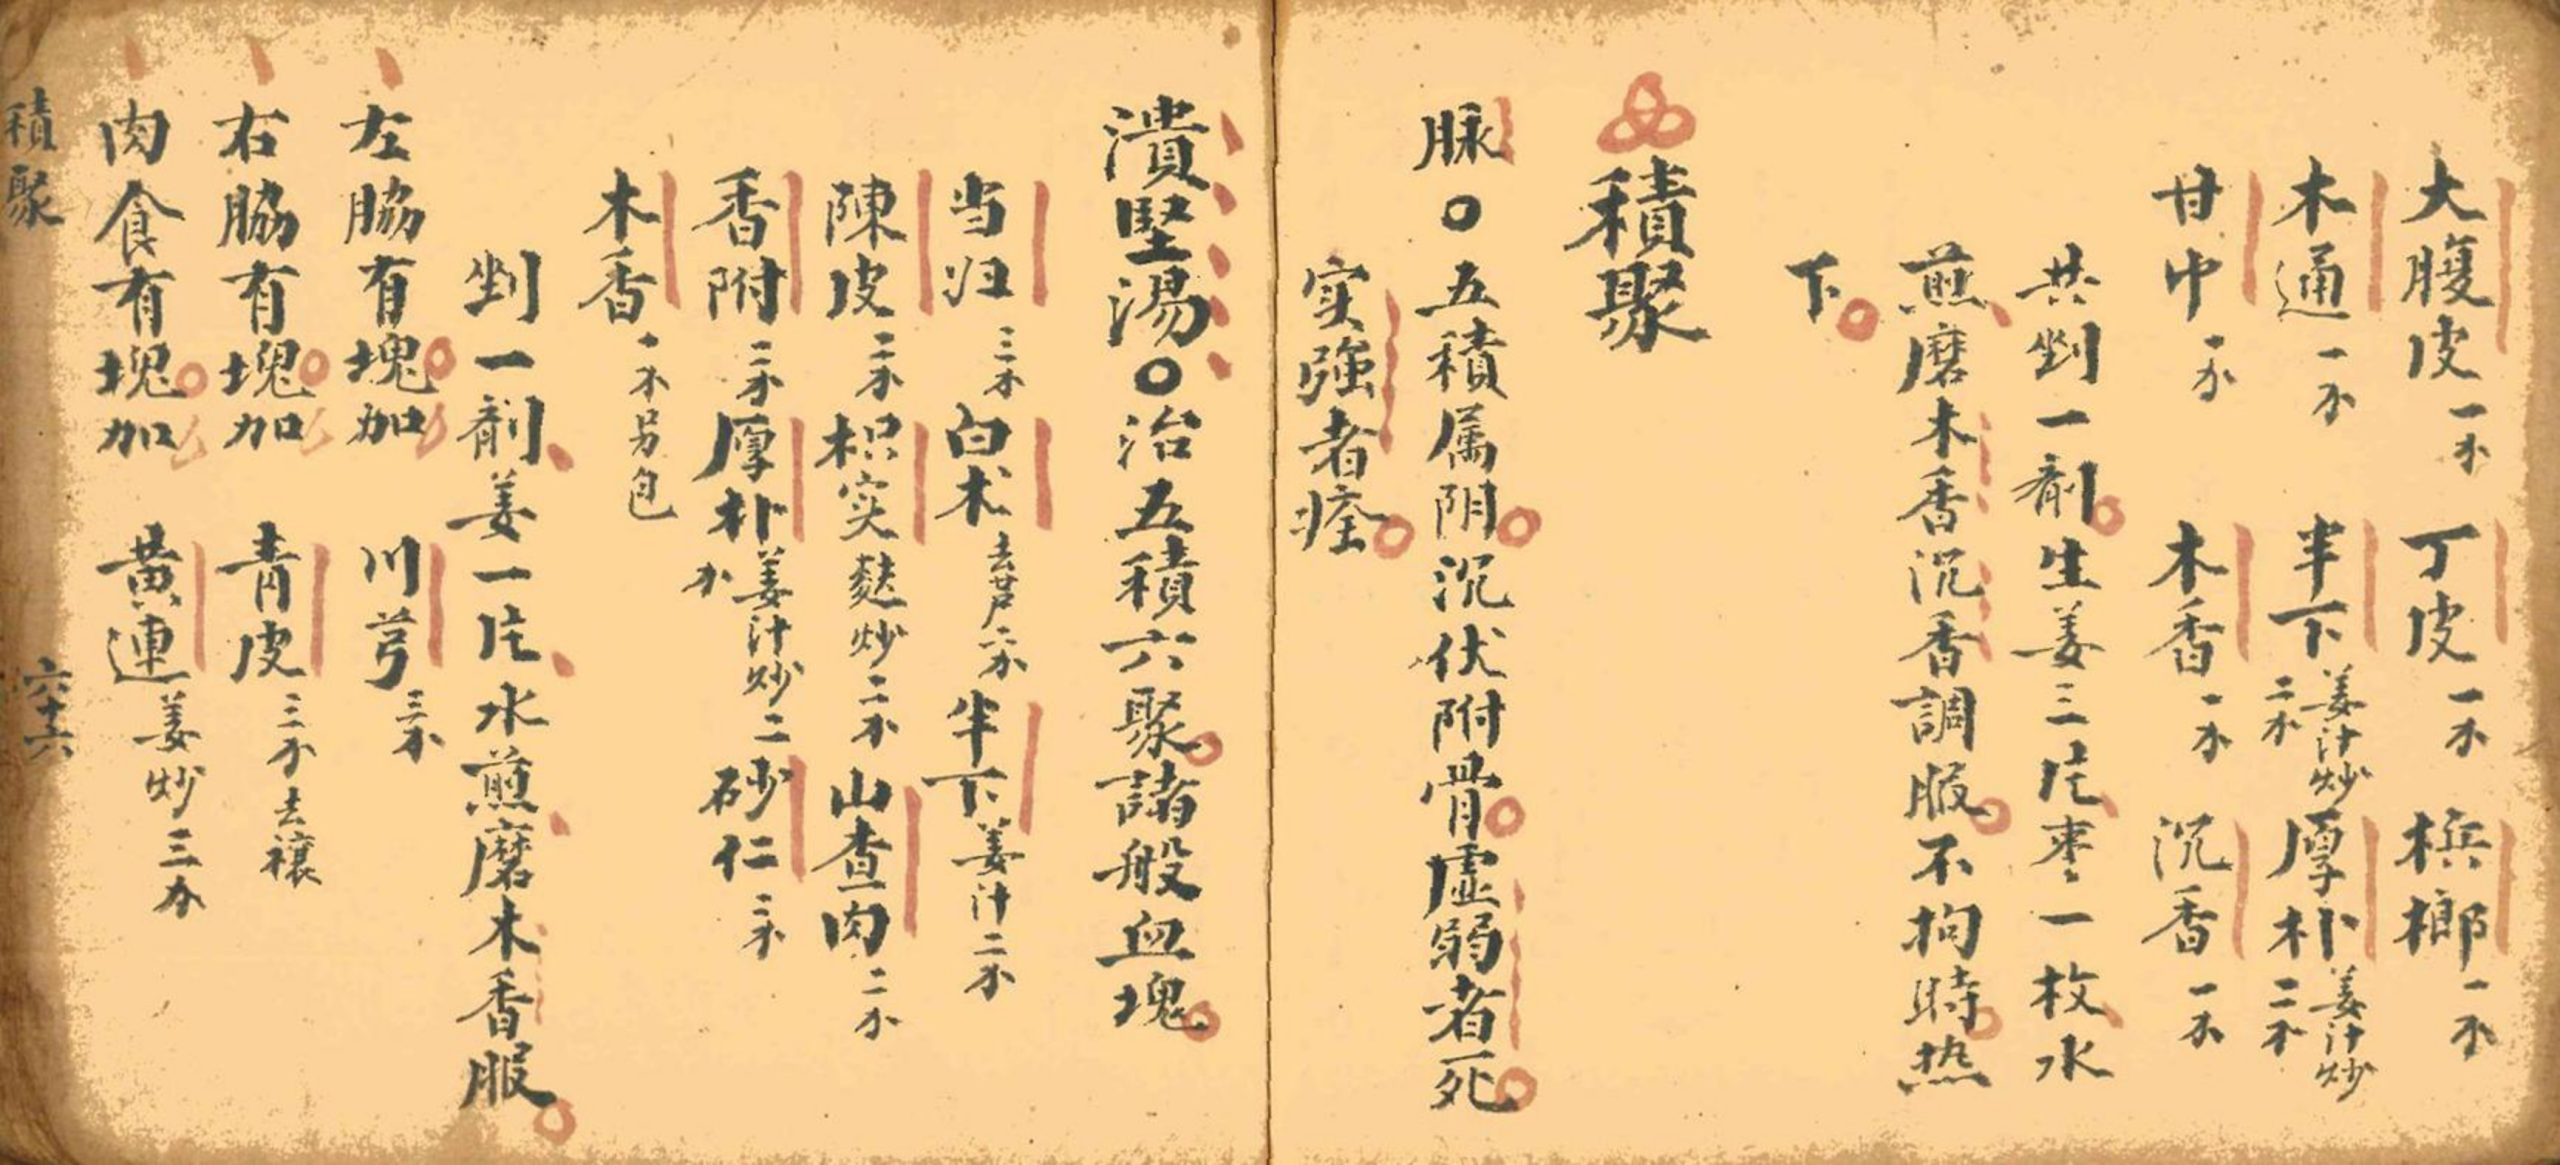 大腹皮一分 丁皮一分 梹榔一分
木通一分 半下姜汁炒二分 厚朴姜汁炒二分
甘中一分 木香一分 沉香一分
共剉一劑生姜三片枣一枚水
煎磨木香沉香調服不拘時热
下
積聚
脉〇五積属阴沉伏附骨虚弱者死
实強者痊
潰堅湯〇治五積六聚諸般血塊
当归三分 白术去芦二分 半下姜汁二分
陳皮二分 枳实麸炒二分 山查肉二分
香附二分 厚朴姜汁炒二分 砂仁三分
木香一分另包
剉一劑姜一片水煎磨木香服
左脇有塊加 川芎三分
右脇有塊加 青皮三分去穰
肉食有塊加 黃連姜炒三分
積聚 六十六